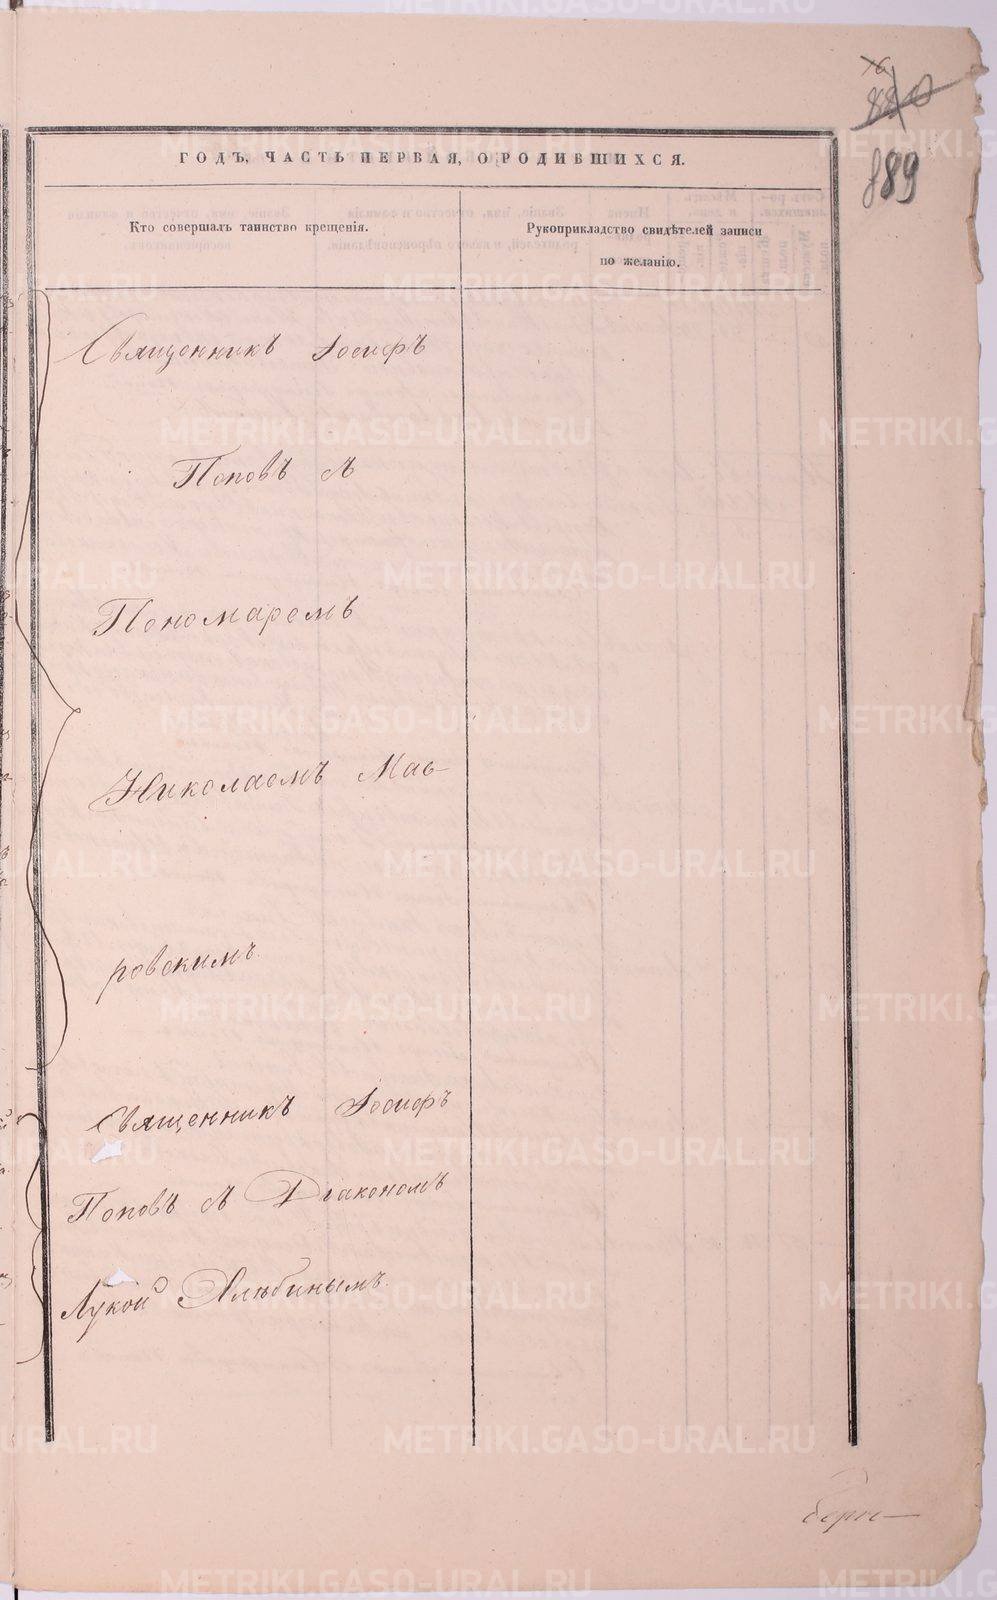 880
889
ГОДЪ, ЧАСТЬ ПЕРВАЯ, О РОДИВШИХСЯ.
Кто совершалъ таинство крещенія.
Рукоприкладство свидѣтелей записи
по желанію.
Священникъ Іосифъ
Поповъ съ
Пономаремъ
Николаемъ Мав-
ровскимъ.
Священникъ Іосифъ
Поповъ съ Діакономъ
Лукой Алябинымъ.
METRIKI.GASO-URAL.RU